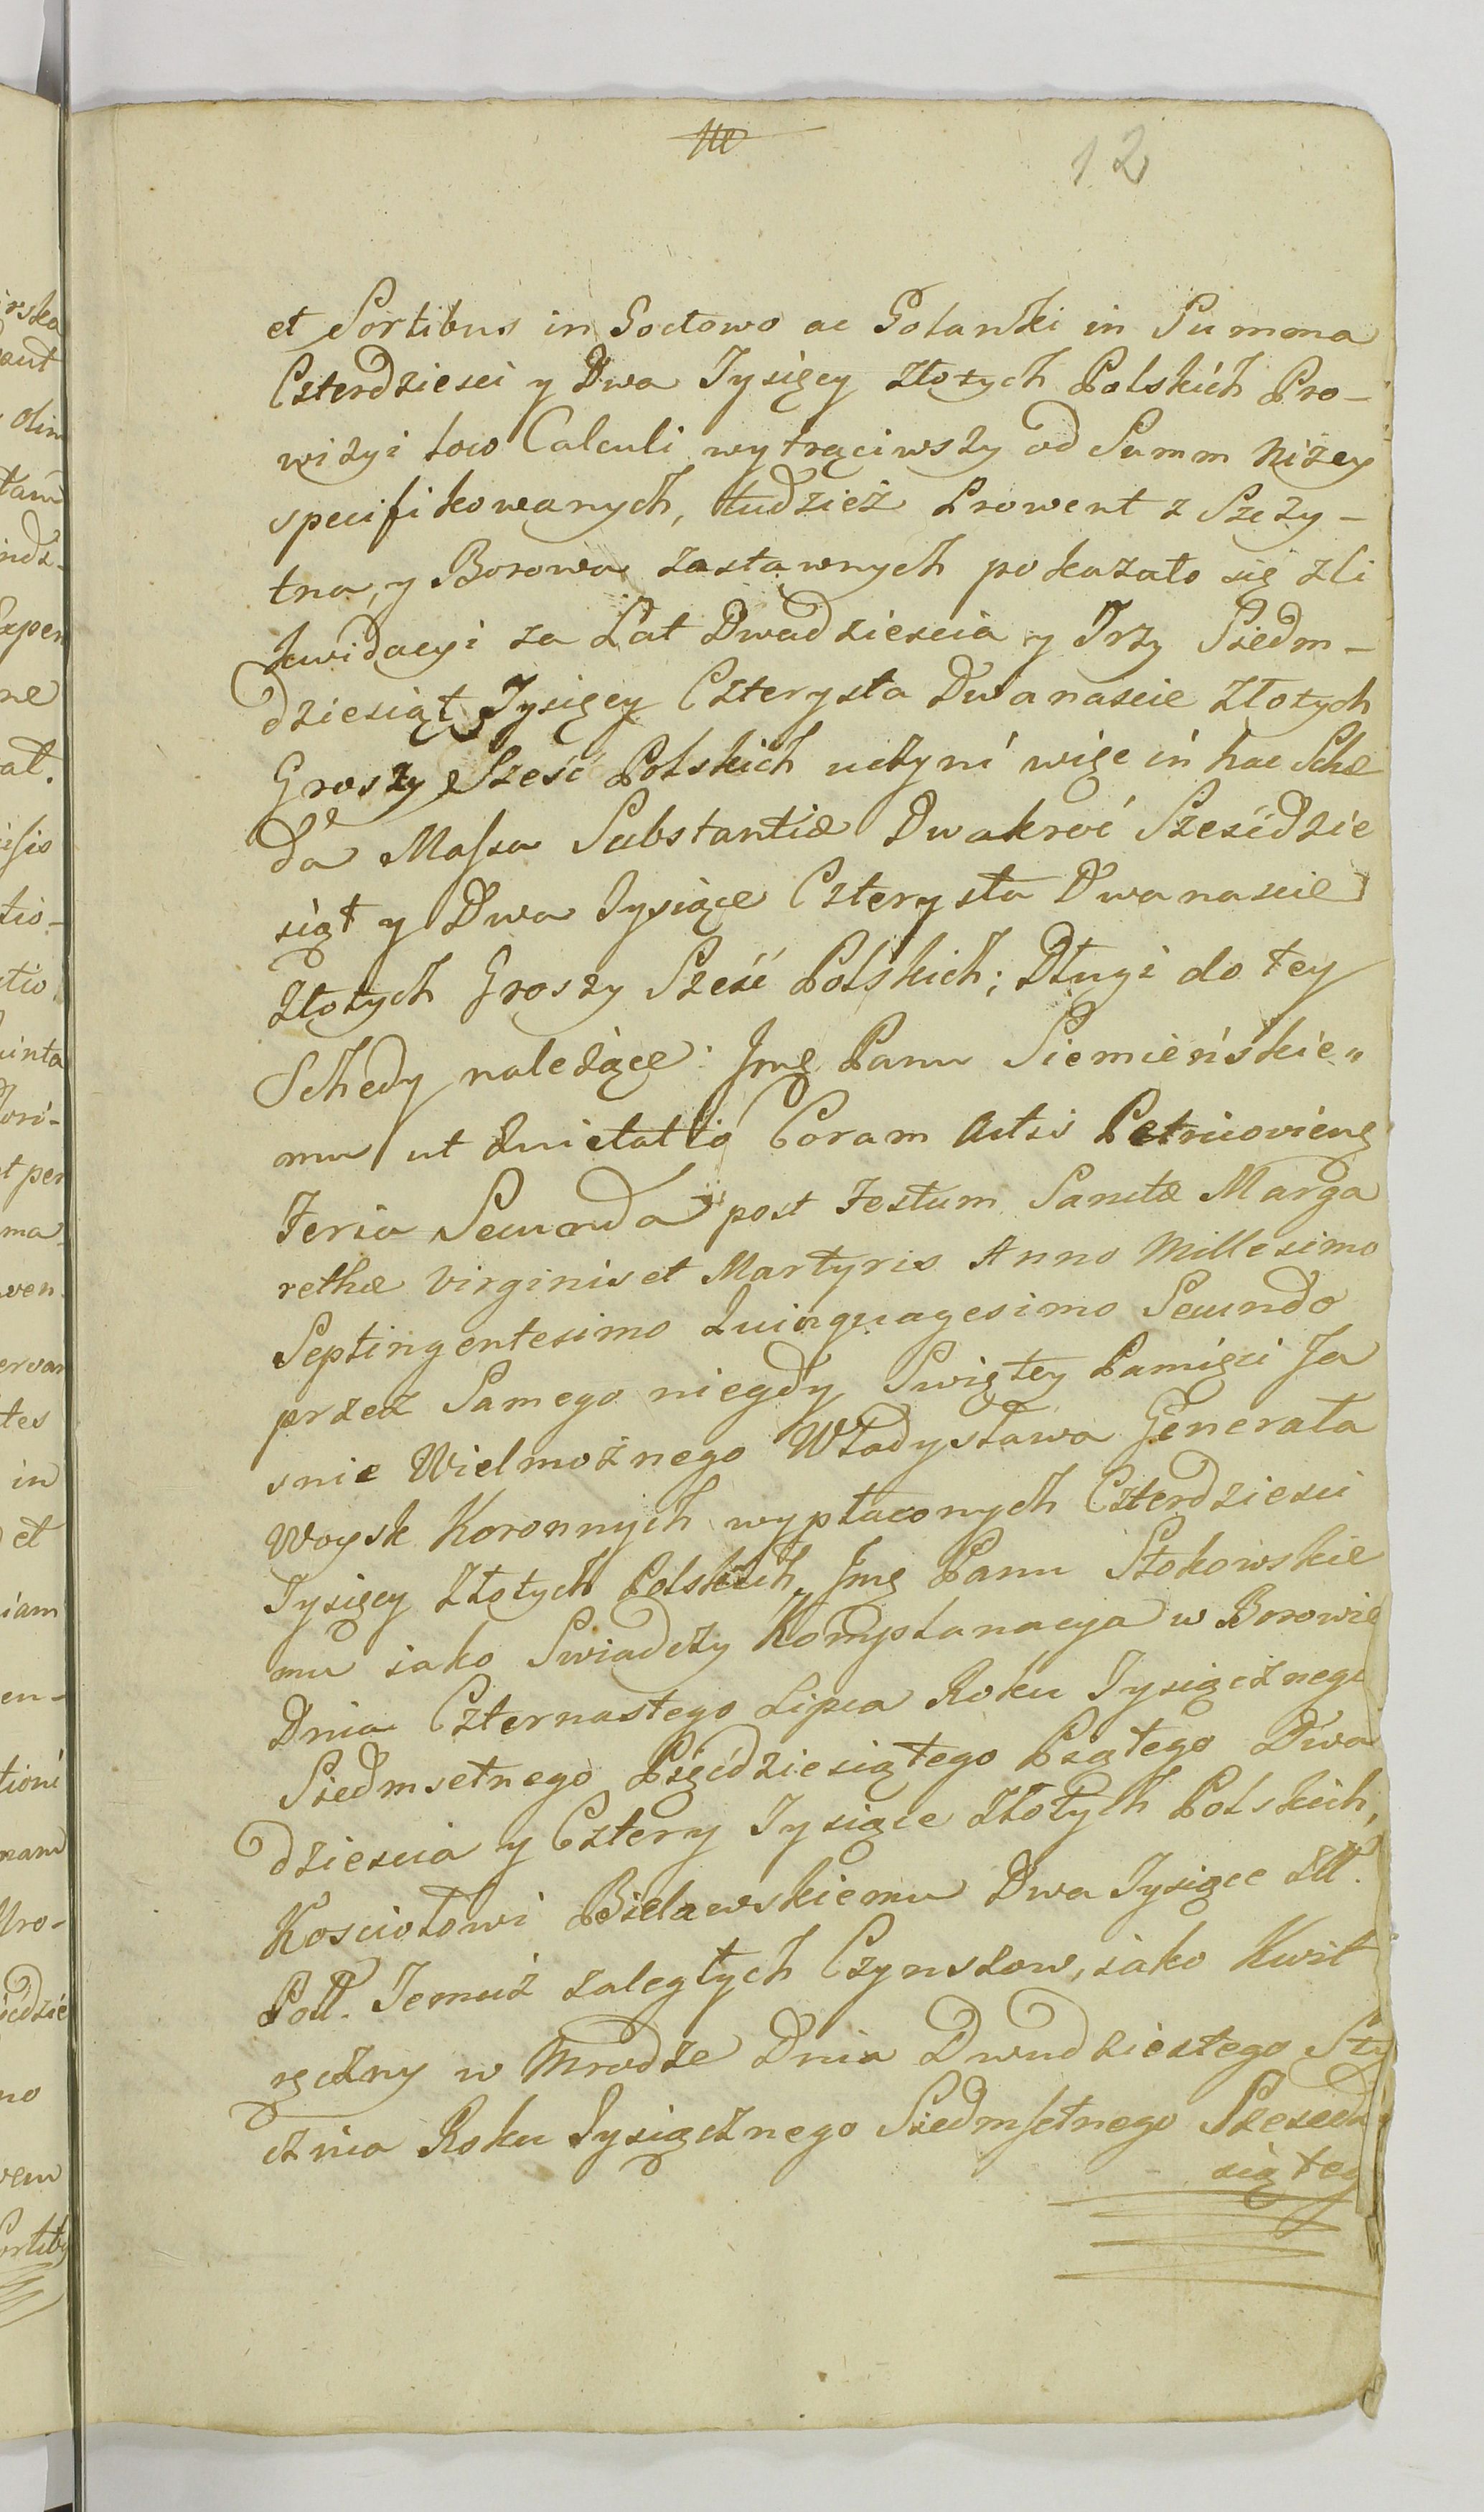 12
et Sortibus in Goctowo ac Golanki in Summa
Czterdziesci y Dwa Tysięcy złotych Polskich Pro-
wizyi loco Calculi wytrąciwszy od Summ niżey
specifikowanych, tudzież Prowent z Szczy-
tna, y Borowa zastawnych pokazało się z li
kwidacyi za Lat Dwadziescia y Trzy Siedm-
dziesiąt Tysięcy Czterysta Dwanascie złotych
Groszy Sześć Polskich uczyni więc in hac Sche
da Massa Substantiæ Dwakroć Sześćdzie
siąt y Dwa Tysiące Czterysta Dwanascie
Złotych Groszy Sześć Polskich; Długi do tey
Schedy należące: Jmę Panu Siemieńskie„
mu ut Quietatio Coram Actis Petricoviens
Feria Secunda post Festum Sanctæ Marga
rethæ Virginis et Martyris Anno Millesimo
Septingentesimo Quinquagesimo Secundo
przez Samego niegdy Swiętey Pamięci Ja
snie Wielmożnego Władysława Generała
Woysk Koronnych wypłaconych Czterdziesci
Tysięcy Złotych Polskich, Jmę Panu Stokowskie
mu iako Swiadczy Komplanacya w Borowie
Dnia Czternastego Lipca Roku Tysiącznego
Siedmsetnego Pięćdziesiątego Piątego Dwa
dziescia y Cztery Tysiące Złotych Polskich,
Kosciołowi Bielawskiemu Dwa Tysiące Złł.
Poll. Temuż zaległych Czynszow, iako Kwit
ręczny w Mrodze Dnia Dwudziestego Sty
cznia Roku Tysiącznego Siedmsetnego Szescdz
siątego